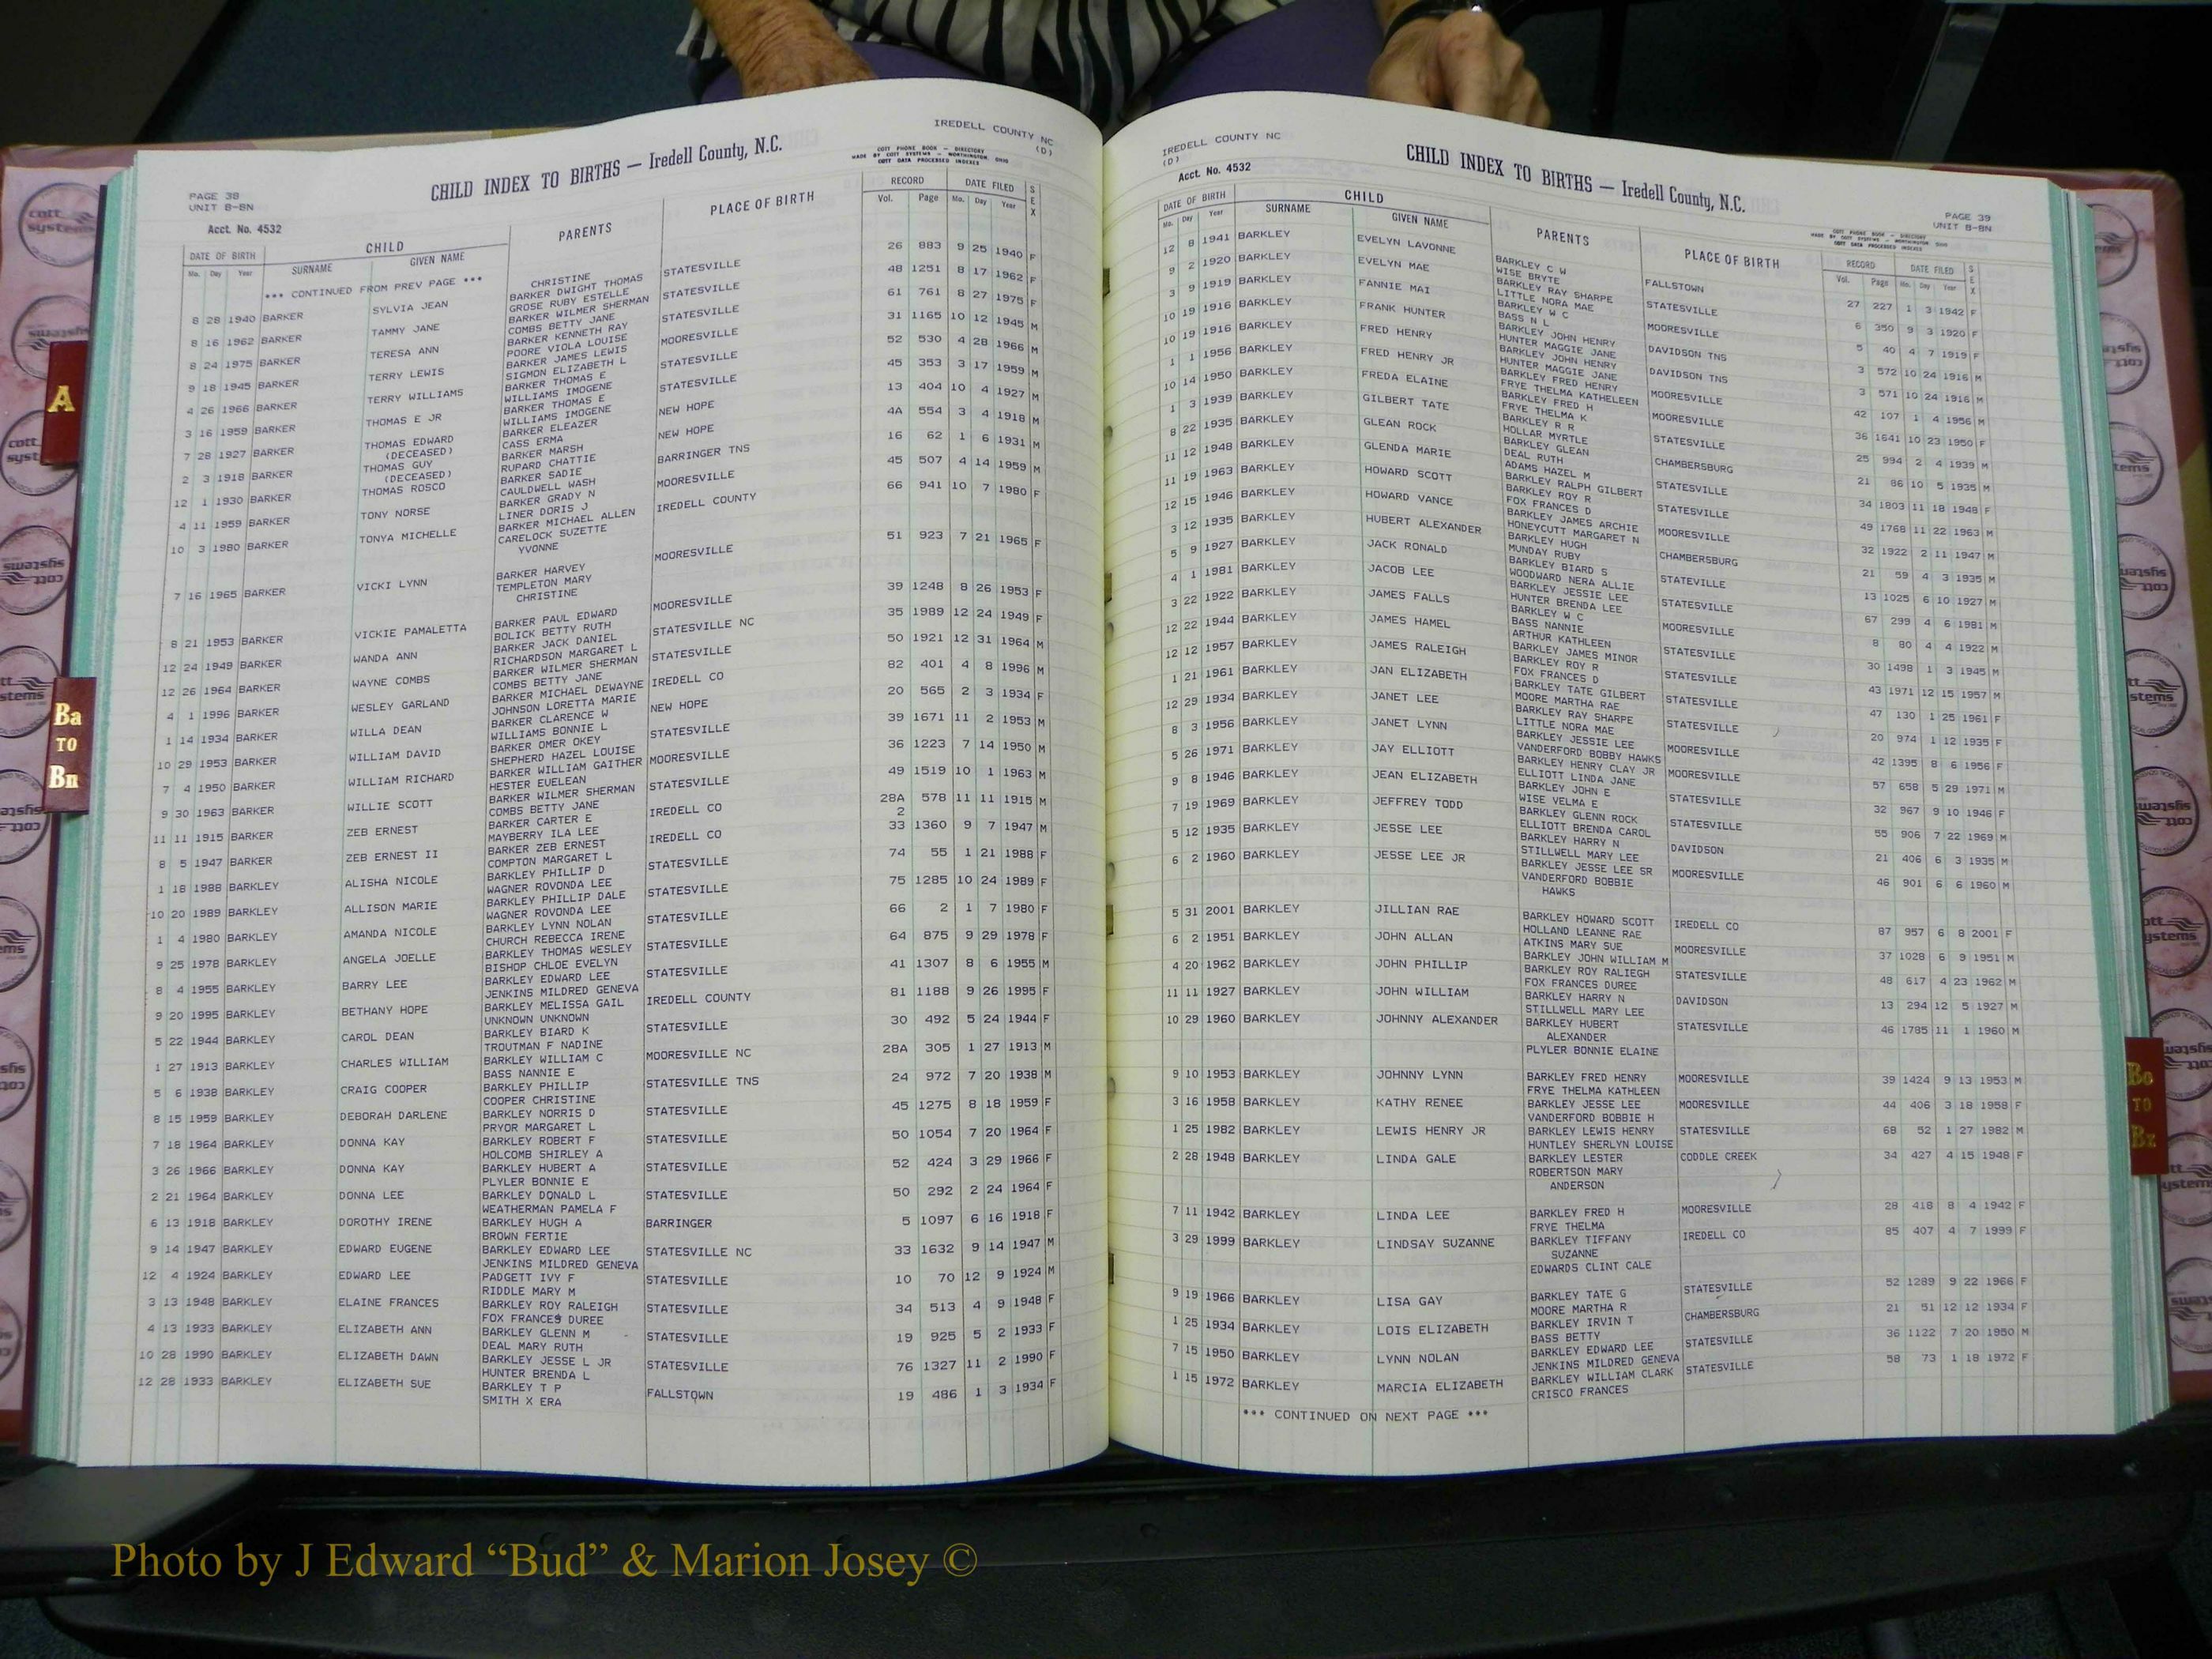 IREDELL COUNTY NC
(D)
COTT PHONE BOOK — DIRECTORY
MADE BY COTT SYSTEMS — WORTHINGTON, OHIO
COTT DATA PROCESSED INDEXES
CHILD INDEX TO BIRTHS — Iredell County, N.C.
PAGE 38
UNIT B-BN
Acct. No. 4532
DATE OF BIRTH CHILD PARENTS PLACE OF BIRTH RECORD DATE FILED SEX
Mo. Day Year SURNAME GIVEN NAME Vol. Page Mo. Day Year
*** CONTINUED FROM PREV PAGE *** CHRISTINE
8 28 1940 BARKER SYLVIA JEAN BARKER DWIGHT THOMAS STATESVILLE 26 883 9 25 1940 F
GROSE RUBY ESTELLE
8 16 1962 BARKER TAMMY JANE BARKER WILMER SHERMAN STATESVILLE 48 1251 8 17 1962 F
COMBS BETTY JANE
8 24 1975 BARKER TERESA ANN BARKER KENNETH RAY STATESVILLE 61 761 8 27 1975 F
POORE VIOLA LOUISE
9 18 1945 BARKER TERRY LEWIS BARKER JAMES LEWIS MOORESVILLE 31 1165 10 12 1945 M
SIGMON ELIZABETH L
4 26 1966 BARKER TERRY WILLIAMS BARKER THOMAS E STATESVILLE 52 530 4 28 1966 M
WILLIAMS IMOGENE
3 16 1959 BARKER THOMAS E JR BARKER THOMAS E STATESVILLE 45 353 3 17 1959 M
WILLIAMS IMOGENE
7 28 1927 BARKER THOMAS EDWARD BARKER ELEAZER NEW HOPE 13 404 10 4 1927 M
(DECEASED) CASS ERMA
2 3 1918 BARKER THOMAS GUY BARKER MARSH NEW HOPE 4A 554 3 4 1918 M
(DECEASED) RUPARD CHATTIE
12 1 1930 BARKER THOMAS ROSCO BARKER SADIE BARRINGER TNS 16 62 1 6 1931 M
CAULDWELL WASH
4 11 1959 BARKER TONY NORSE BARKER GRADY N MOORESVILLE 45 507 4 14 1959 M
LINER DORIS J
10 3 1980 BARKER TONYA MICHELLE BARKER MICHAEL ALLEN IREDELL COUNTY 66 941 10 7 1980 F
CARELOCK SUZETTE
YVONNE
7 16 1965 BARKER VICKI LYNN BARKER HARVEY MOORESVILLE 51 923 7 21 1965 F
TEMPLETON MARY
CHRISTINE
8 21 1953 BARKER VICKIE PAMALETTA BARKER PAUL EDWARD MOORESVILLE 39 1248 8 26 1953 F
BOLICK BETTY RUTH
12 24 1949 BARKER WANDA ANN BARKER JACK DANIEL STATESVILLE NC 35 1989 12 24 1949 F
RICHARDSON MARGARET L
12 26 1964 BARKER WAYNE COMBS BARKER WILMER SHERMAN STATESVILLE 50 1921 12 31 1964 M
COMBS BETTY JANE
4 1 1996 BARKER WESLEY GARLAND BARKER MICHAEL DEWAYNE IREDELL CO 82 401 4 8 1996 M
JOHNSON LORETTA MARIE
1 14 1934 BARKER WILLA DEAN BARKER CLARENCE W NEW HOPE 20 565 2 3 1934 F
WILLIAMS BONNIE L
10 29 1953 BARKER WILLIAM DAVID BARKER OMER OKEY STATESVILLE 39 1671 11 2 1953 M
SHEPHERD HAZEL LOUISE
7 4 1950 BARKER WILLIAM RICHARD BARKER WILLIAM GAITHER MOORESVILLE 36 1223 7 14 1950 M
HESTER EUELEAN
9 30 1963 BARKER WILLIE SCOTT BARKER WILMER SHERMAN STATESVILLE 49 1519 10 1 1963 M
COMBS BETTY JANE
11 11 1915 BARKER ZEB ERNEST BARKER CARTER E IREDELL CO 28A 578 11 11 1915 M
MAYBERRY ILA LEE 2
8 5 1947 BARKER ZEB ERNEST II BARKER ZEB ERNEST IREDELL CO 33 1360 9 7 1947 M
COMPTON MARGARET L
1 18 1988 BARKLEY ALISHA NICOLE BARKLEY PHILLIP D STATESVILLE 74 55 1 21 1988 F
WAGNER ROVONDA LEE
10 20 1989 BARKLEY ALLISON MARIE BARKLEY PHILLIP DALE STATESVILLE 75 1285 10 24 1989 F
WAGNER ROVONDA LEE
1 4 1980 BARKLEY AMANDA NICOLE BARKLEY LYNN NOLAN STATESVILLE 66 2 1 7 1980 F
CHURCH REBECCA IRENE
9 25 1978 BARKLEY ANGELA JOELLE BARKLEY THOMAS WESLEY STATESVILLE 64 875 9 29 1978 F
BISHOP CHLOE EVELYN
8 4 1955 BARKLEY BARRY LEE BARKLEY EDWARD LEE STATESVILLE 41 1307 8 6 1955 M
JENKINS MILDRED GENEVA
9 20 1995 BARKLEY BETHANY HOPE BARKLEY MELISSA GAIL IREDELL COUNTY 81 1188 9 26 1995 F
UNKNOWN UNKNOWN
5 22 1944 BARKLEY CAROL DEAN BARKLEY BIARD K STATESVILLE 30 492 5 24 1944 F
TROUTMAN F NADINE
1 27 1913 BARKLEY CHARLES WILLIAM BARKLEY WILLIAM C MOORESVILLE NC 28A 305 1 27 1913 M
BASS NANNIE E
5 6 1938 BARKLEY CRAIG COOPER BARKLEY PHILLIP STATESVILLE TNS 24 972 7 20 1938 M
COOPER CHRISTINE
8 15 1959 BARKLEY DEBORAH DARLENE BARKLEY NORRIS D STATESVILLE 45 1275 8 18 1959 F
PRYOR MARGARET L
7 18 1964 BARKLEY DONNA KAY BARKLEY ROBERT F STATESVILLE 50 1054 7 20 1964 F
HOLCOMB SHIRLEY A
3 26 1966 BARKLEY DONNA KAY BARKLEY HUBERT A STATESVILLE 52 424 3 29 1966 F
PLYLER BONNIE E
2 21 1964 BARKLEY DONNA LEE BARKLEY DONALD L STATESVILLE 50 292 2 24 1964 F
WEATHERMAN PAMELA F
6 13 1918 BARKLEY DOROTHY IRENE BARKLEY HUGH A BARRINGER 5 1097 6 16 1918 F
BROWN FERTIE
9 14 1947 BARKLEY EDWARD EUGENE BARKLEY EDWARD LEE STATESVILLE NC 33 1632 9 14 1947 M
JENKINS MILDRED GENEVA
12 4 1924 BARKLEY EDWARD LEE PADGETT IVY F STATESVILLE 10 70 12 9 1924 M
RIDDLE MARY M
3 13 1948 BARKLEY ELAINE FRANCES BARKLEY ROY RALEIGH STATESVILLE 34 513 4 9 1948 F
FOX FRANCES DUREE
4 13 1933 BARKLEY ELIZABETH ANN BARKLEY GLENN M STATESVILLE 19 925 5 2 1933 F
DEAL MARY RUTH
10 28 1990 BARKLEY ELIZABETH DAWN BARKLEY JESSE L JR STATESVILLE 76 1327 11 2 1990 F
HUNTER BRENDA L
12 28 1933 BARKLEY ELIZABETH SUE BARKLEY T P FALLSTOWN 19 486 1 3 1934 F
SMITH X ERA
IREDELL COUNTY NC
(D)
Acct. No. 4532
CHILD INDEX TO BIRTHS — Iredell County, N.C.
PAGE 39
UNIT B-BN
COTT PHONE BOOK — DIRECTORY
MADE BY COTT SYSTEMS — WORTHINGTON, OHIO
COTT DATA PROCESSED INDEXES
DATE OF BIRTH CHILD PARENTS PLACE OF BIRTH RECORD DATE FILED SEX
Mo. Day Year SURNAME GIVEN NAME Vol. Page Mo. Day Year
12 8 1941 BARKLEY EVELYN LAVONNE BARKLEY C W FALLSTOWN 27 227 1 3 1942 F
WISE BRYTE
9 2 1920 BARKLEY EVELYN MAE BARKLEY RAY SHARPE STATESVILLE 6 350 9 3 1920 F
LITTLE NORA MAE
3 9 1919 BARKLEY FANNIE MAI BARKLEY W C MOORESVILLE 5 40 4 7 1919 F
BASS N L
10 19 1916 BARKLEY FRANK HUNTER BARKLEY JOHN HENRY DAVIDSON TNS 3 572 10 24 1916 M
HUNTER MAGGIE JANE
10 19 1916 BARKLEY FRED HENRY BARKLEY JOHN HENRY DAVIDSON TNS 3 571 10 24 1916 M
HUNTER MAGGIE JANE
1 1 1956 BARKLEY FRED HENRY JR BARKLEY FRED HENRY MOORESVILLE 42 107 1 4 1956 M
FRYE THELMA KATHELEEN
10 14 1950 BARKLEY FREDA ELAINE BARKLEY FRED H STATESVILLE 36 1641 10 23 1950 F
FRYE THELMA K
1 3 1939 BARKLEY GILBERT TATE BARKLEY R R CHAMBERSBURG 25 994 2 4 1939 M
HOLLAR MYRTLE
8 22 1935 BARKLEY GLEAN ROCK BARKLEY GLEAN STATESVILLE 21 86 10 5 1935 M
DEAL RUTH
11 12 1948 BARKLEY GLENDA MARIE ADAMS HAZEL M STATESVILLE 34 1803 11 18 1948 F
BARKLEY RALPH GILBERT
11 19 1963 BARKLEY HOWARD SCOTT BARKLEY ROY R MOORESVILLE 49 1768 11 22 1963 M
FOX FRANCES D
12 15 1946 BARKLEY HOWARD VANCE BARKLEY JAMES ARCHIE CHAMBERSBURG 32 1922 2 11 1947 M
HONEYCUTT MARGARET N
3 12 1935 BARKLEY HUBERT ALEXANDER BARKLEY HUGH STATEVILLE 21 59 4 3 1935 M
MUNDAY RUBY
5 9 1927 BARKLEY JACK RONALD BARKLEY BIARD S STATESVILLE 13 1025 6 10 1927 M
WOODWARD NERA ALLIE
4 1 1981 BARKLEY JACOB LEE BARKLEY JESSIE LEE MOORESVILLE 67 299 4 6 1981 M
HUNTER BRENDA LEE
3 22 1922 BARKLEY JAMES FALLS BARKLEY W C STATESVILLE 8 80 4 4 1922 M
BASS NANNIE
12 22 1944 BARKLEY JAMES HAMEL ARTHUR KATHLEEN STATESVILLE 30 1498 1 3 1945 M
BARKLEY JAMES MINOR
12 12 1957 BARKLEY JAMES RALEIGH BARKLEY ROY R STATESVILLE 43 1971 12 15 1957 M
FOX FRANCES D
1 21 1961 BARKLEY JAN ELIZABETH BARKLEY TATE GILBERT STATESVILLE 47 130 1 25 1961 F
MOORE MARTHA RAE
12 29 1934 BARKLEY JANET LEE BARKLEY RAY SHARPE MOORESVILLE 20 974 1 12 1935 F
LITTLE NORA MAE
8 3 1956 BARKLEY JANET LYNN BARKLEY JESSIE LEE MOORESVILLE 42 1395 8 6 1956 F
VANDERFORD BOBBY HAWKS
5 26 1971 BARKLEY JAY ELLIOTT BARKLEY HENRY CLAY JR STATESVILLE 57 658 5 29 1971 M
ELLIOTT LINDA JANE
9 8 1946 BARKLEY JEAN ELIZABETH BARKLEY JOHN E STATESVILLE 32 967 9 10 1946 F
WISE VELMA E
7 19 1969 BARKLEY JEFFREY TODD BARKLEY GLENN ROCK STATESVILLE 55 906 7 22 1969 M
ELLIOTT BRENDA CAROL
5 12 1935 BARKLEY JESSE LEE BARKLEY HARRY N DAVIDSON 21 406 6 3 1935 M
STILLWELL MARY LEE
6 2 1960 BARKLEY JESSE LEE JR BARKLEY JESSE LEE SR MOORESVILLE 46 901 6 6 1960 M
VANDERFORD BOBBIE
HAWKS
5 31 2001 BARKLEY JILLIAN RAE BARKLEY HOWARD SCOTT IREDELL CO 87 957 6 8 2001 F
HOLLAND LEANNE RAE
6 2 1951 BARKLEY JOHN ALLAN ATKINS MARY SUE MOORESVILLE 37 1028 6 9 1951 M
BARKLEY JOHN WILLIAM M
4 20 1962 BARKLEY JOHN PHILLIP BARKLEY ROY RALIEGH STATESVILLE 48 617 4 23 1962 M
FOX FRANCES DUREE
11 11 1927 BARKLEY JOHN WILLIAM BARKLEY HARRY N DAVIDSON 13 294 12 5 1927 M
STILLWELL MARY LEE
10 29 1960 BARKLEY JOHNNY ALEXANDER BARKLEY HUBERT STATESVILLE 46 1785 11 1 1960 M
ALEXANDER
PLYLER BONNIE ELAINE
9 10 1953 BARKLEY JOHNNY LYNN BARKLEY FRED HENRY MOORESVILLE 39 1424 9 13 1953 M
FRYE THELMA KATHLEEN
3 16 1958 BARKLEY KATHY RENEE BARKLEY JESSE LEE MOORESVILLE 44 406 3 18 1958 F
VANDERFORD BOBBIE H
1 25 1982 BARKLEY LEWIS HENRY JR BARKLEY LEWIS HENRY STATESVILLE 68 52 1 27 1982 M
HUNTLEY SHERLYN LOUISE
2 28 1948 BARKLEY LINDA GALE BARKLEY LESTER CODDLE CREEK 34 427 4 15 1948 F
ROBERTSON MARY
ANDERSON
7 11 1942 BARKLEY LINDA LEE BARKLEY FRED H MOORESVILLE 28 418 8 4 1942 F
FRYE THELMA
3 29 1999 BARKLEY LINDSAY SUZANNE BARKLEY TIFFANY IREDELL CO 85 407 4 7 1999 F
SUZANNE
EDWARDS CLINT CALE
9 19 1966 BARKLEY LISA GAY BARKLEY TATE G STATESVILLE 52 1289 9 22 1966 F
MOORE MARTHA R
1 25 1934 BARKLEY LOIS ELIZABETH BARKLEY IRVIN T CHAMBERSBURG 21 51 12 12 1934 F
BASS BETTY
7 15 1950 BARKLEY LYNN NOLAN BARKLEY EDWARD LEE STATESVILLE 36 1122 7 20 1950 M
JENKINS MILDRED GENEVA
1 15 1972 BARKLEY MARCIA ELIZABETH BARKLEY WILLIAM CLARK STATESVILLE 58 73 1 18 1972 F
CRISCO FRANCES
*** CONTINUED ON NEXT PAGE ***
A
Ba
TO
Bn
Bo
TO
Bz
cott
systems
Photo by J Edward “Bud” & Marion Josey ©